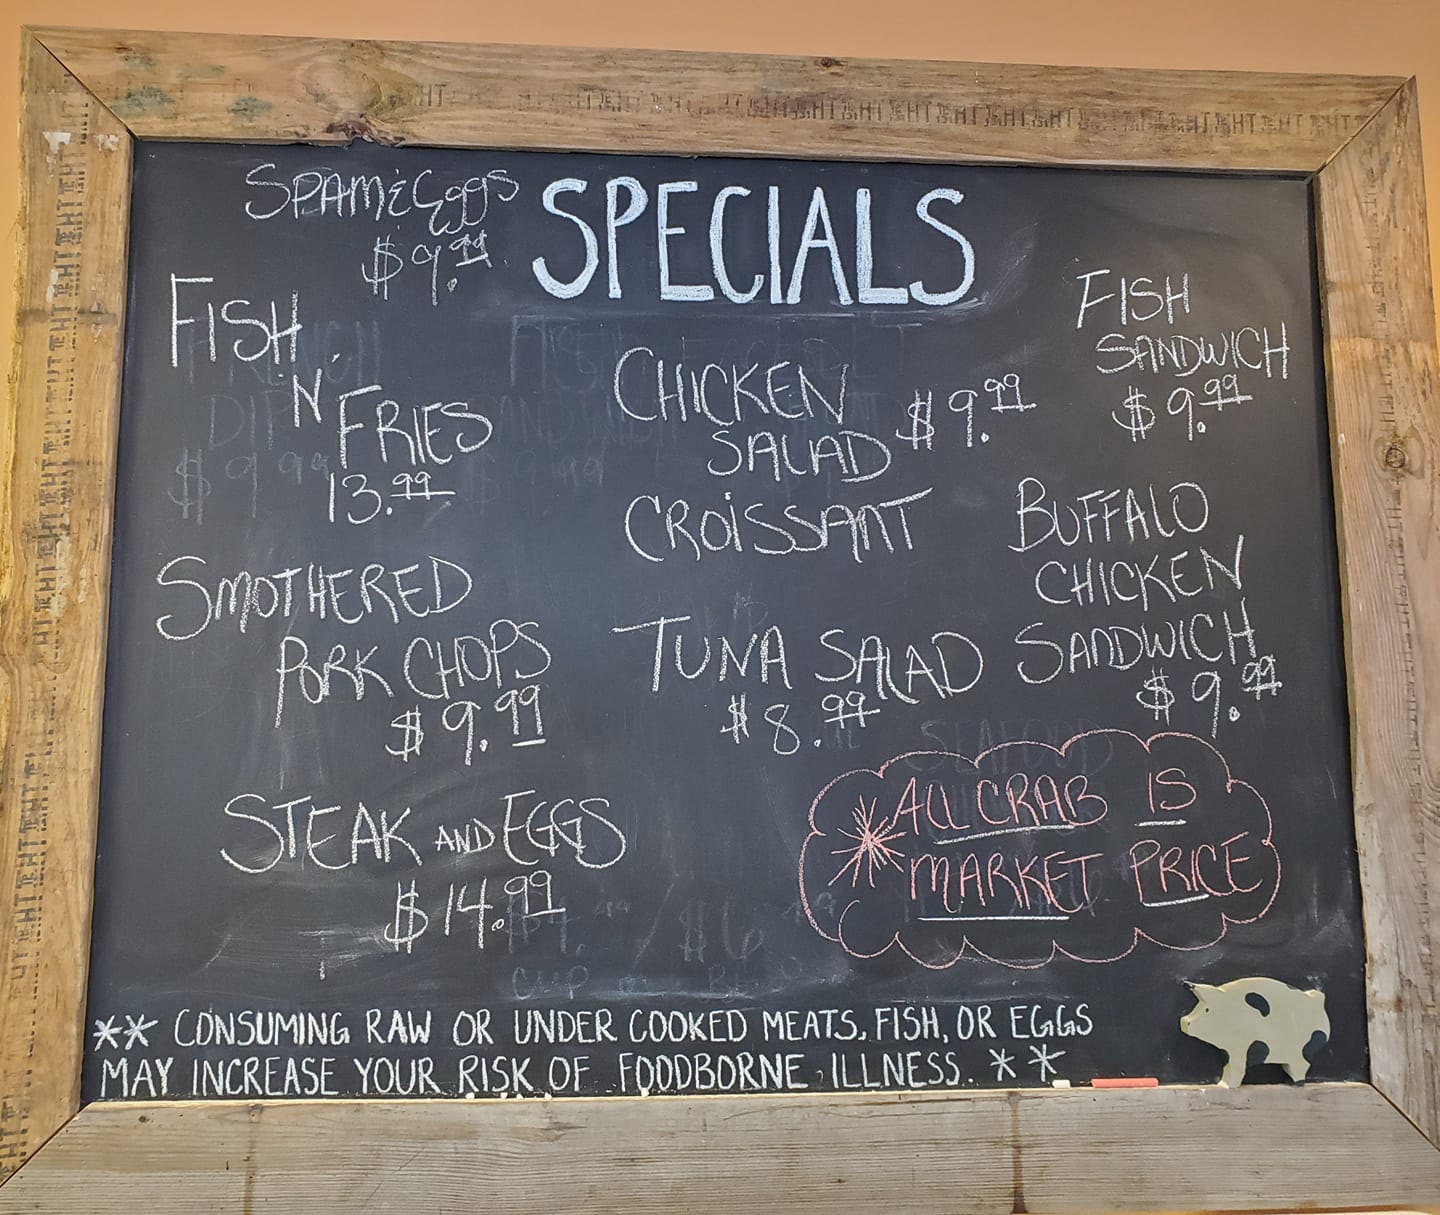 SPECIALS
SPAM & Eggs
$9.99
FISH
N FRIES
13.99
SMOTHERED
PORK CHOPS
$9.99
STEAK AND EGGS
$14.99
CHICKEN
SALAD $9.99
CROISSANT
TUNA SALAD
$8.99
FISH
SANDWICH
$9.99
BUFFALO
CHICKEN
SANDWICH
$9.99
* ALL CRAB IS
MARKET PRICE
** CONSUMING RAW OR UNDER COOKED MEATS, FISH, OR EGGS
MAY INCREASE YOUR RISK OF FOODBORNE ILLNESS. **